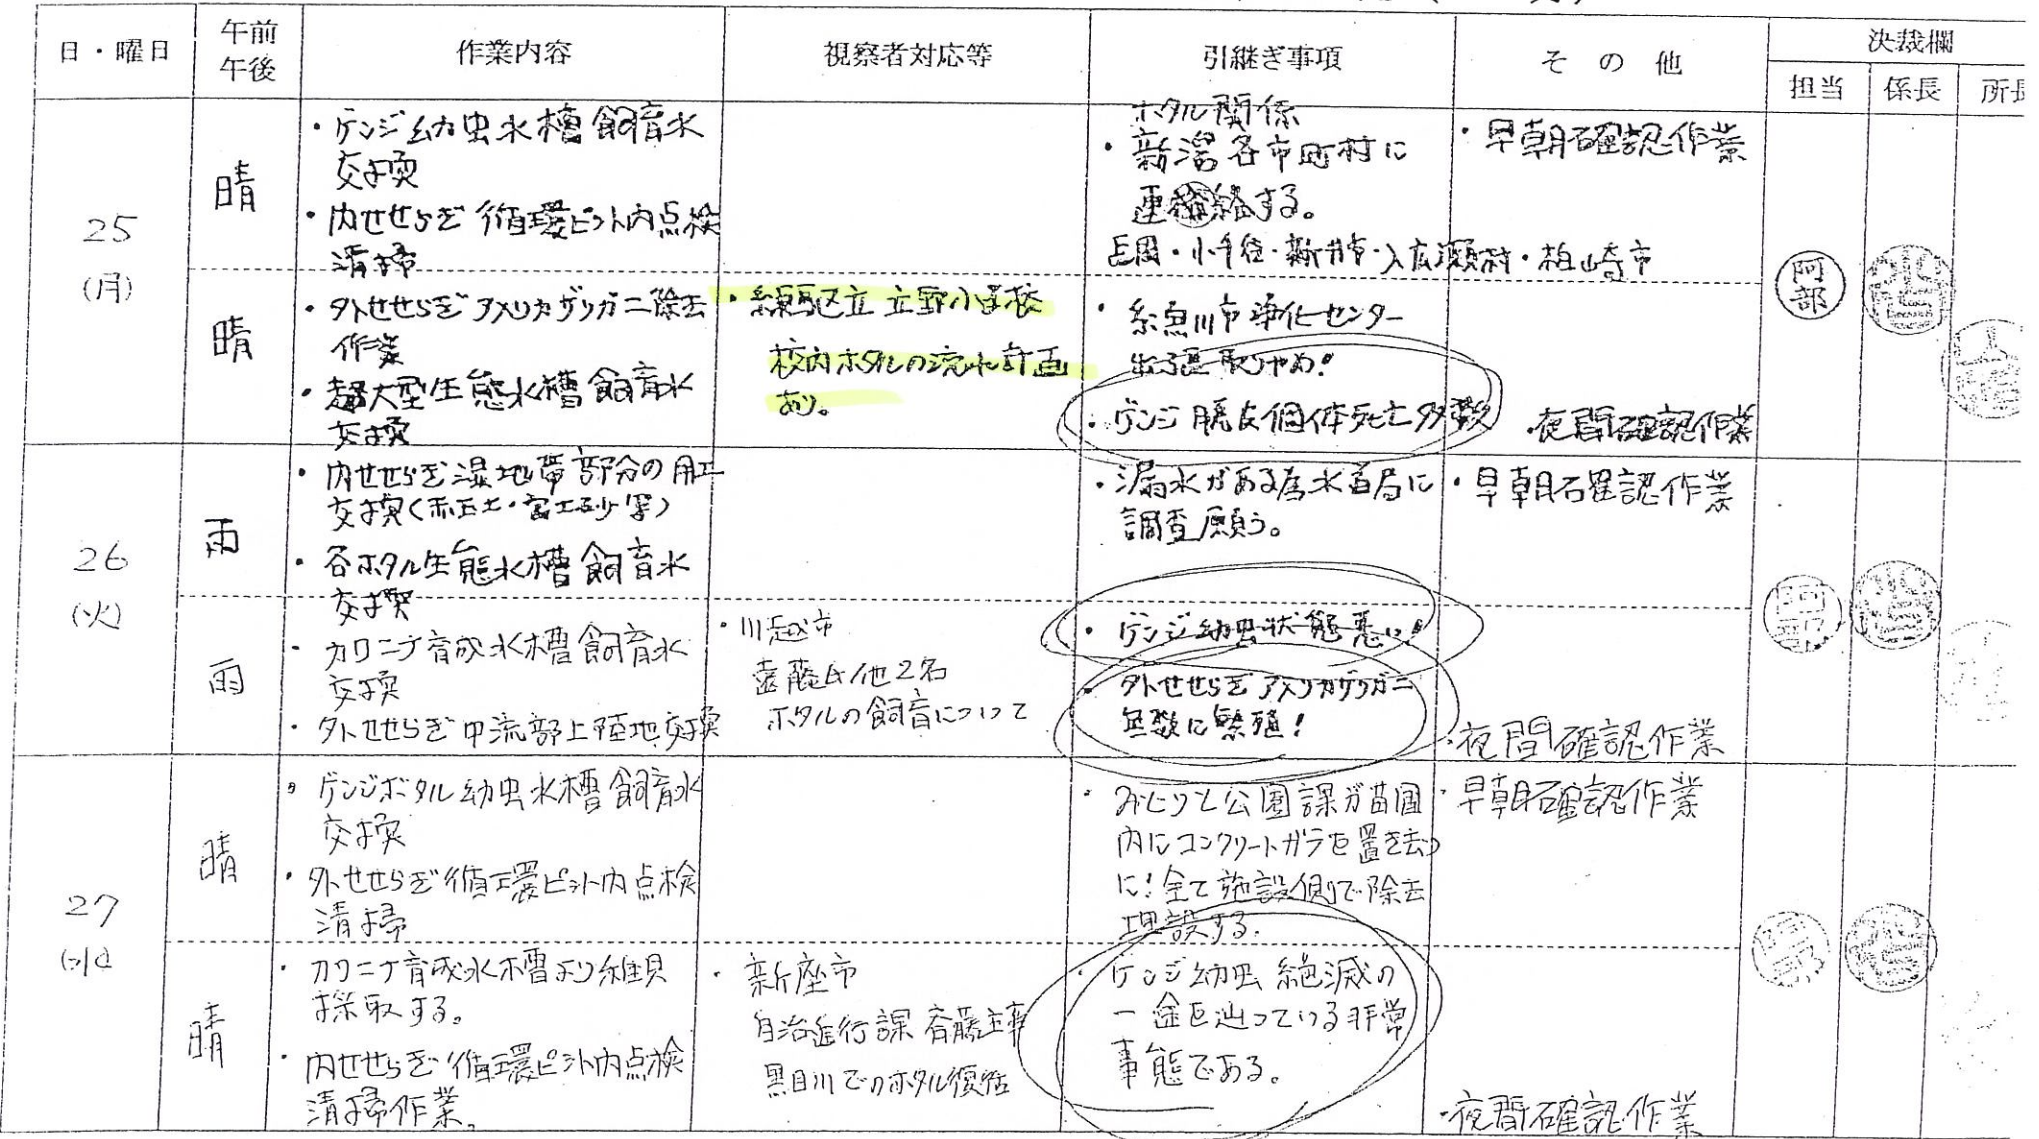 日・曜日
午前
午後
作業内容
視察者対応等
引継ぎ事項
その他
決裁欄
担当
係長
所長
25
(月)
晴
・ゲンジ幼虫水槽飼育水
交換
・内せせらぎ循環ピット内点検
清掃
ホタル関係
・新潟各市町村に
連絡する。
長岡・小千谷・新井市・入広瀬村・柏崎市
・早朝確認作業
晴
・外せせらぎアメリカザリガニ除去
作業
・超大型生態水槽飼育水
交換
・練馬区立 立野小学校
校内ホタルの流水計画
あり。
・糸魚川市浄化センター
出張取りやめ!
・ゲンジ 個体死亡多数
・夜間確認作業
阿部
26
(火)
雨
・内せせらぎ湿地帯部分の用土
交換(赤玉土・富士砂等)
・各ホタル生態水槽飼育水
交換
・漏水がある為水道局に
調査願う。
・早朝確認作業
雨
・カワニナ育成水槽飼育水
交換
・外せせらぎ中流部上陸地交換
・川越市
遠藤氏他2名
ホタルの飼育について
・ゲンジ幼虫状態悪い!
・外せせらぎアメリカザリガニ
無数に繁殖!
・夜間確認作業
27
(水)
晴
・ゲンジボタル幼虫水槽飼育水
交換
・外せせらぎ循環ピット内点検
清掃
・みどりと公園課が苗圃
内にコンクリートガラを置き去り
に!全て施設側で除去
埋設する。
・早朝確認作業
晴
・カワニナ育成水槽より稚貝
採取する。
・内せせらぎ循環ピット内点検
清掃作業。
・新座市
自治進行課 斉藤主事
黒目川でのホタル復活
・ゲンジ幼虫絶滅の
一途を辿っている非常
事態である。
・夜間確認作業